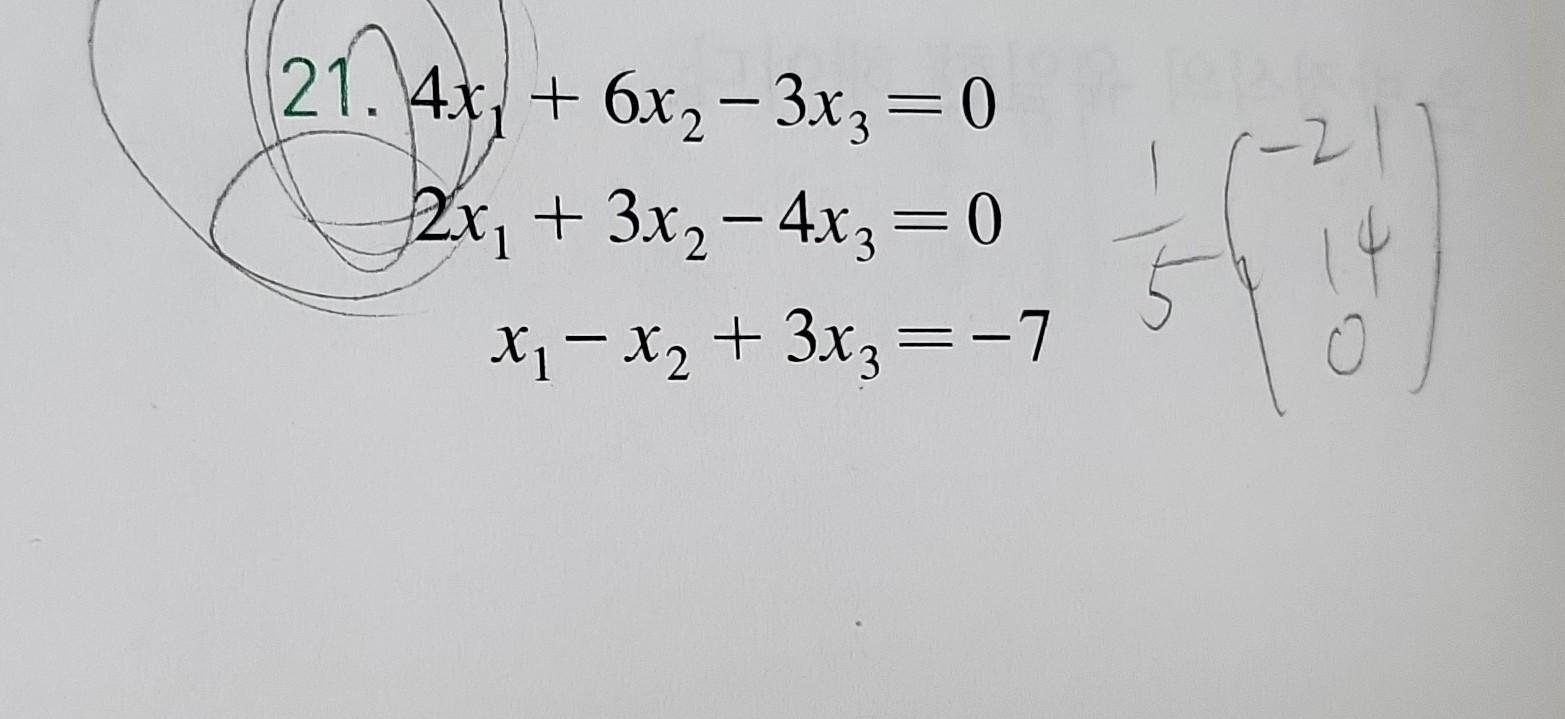 21. 4x₁ + 6x₂ − 3x₃ = 0
2x₁ + 3x₂ − 4x₃ = 0
x₁ − x₂ + 3x₃ = −7
1/5 (−21
14
0)